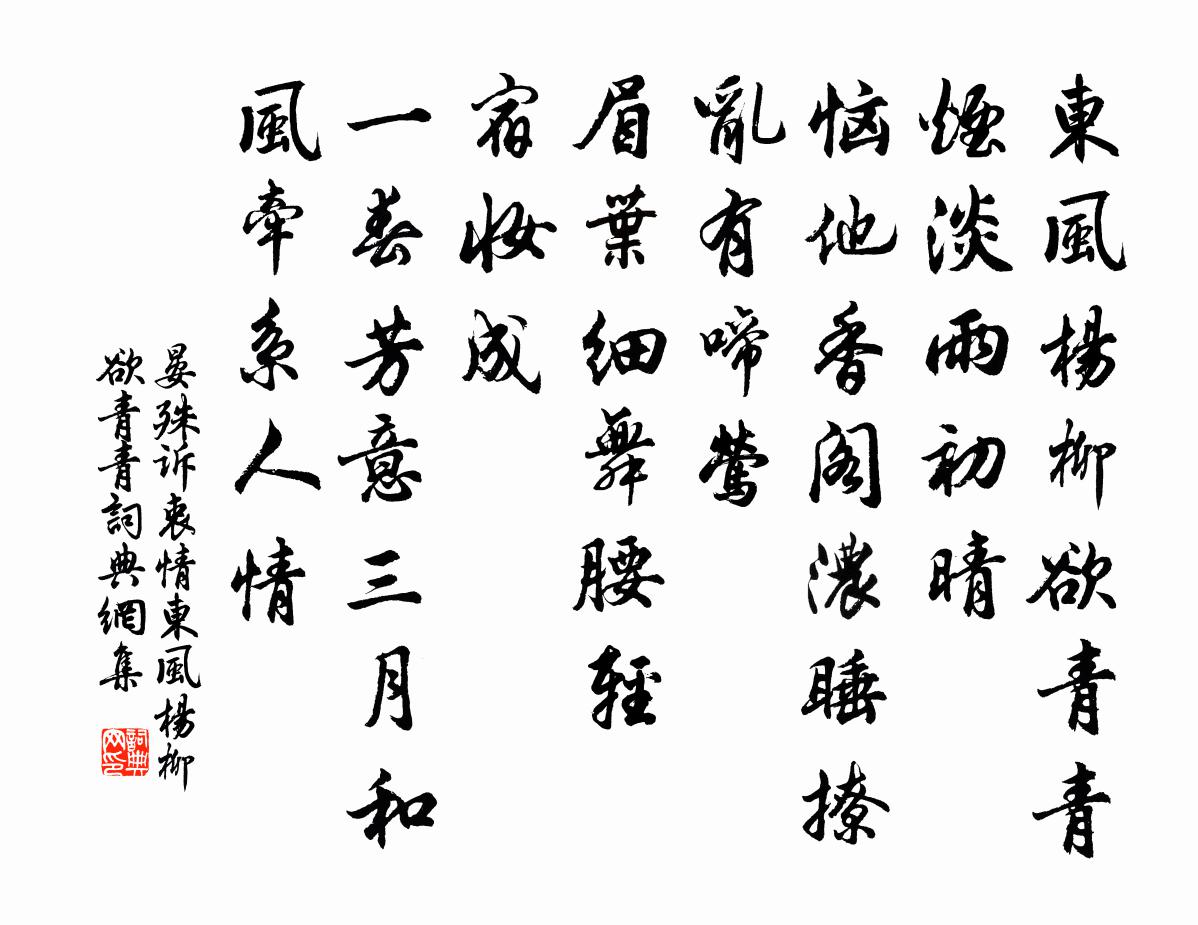 東風楊柳欲青青
煙淡雨初晴
恼他香阁濃睡撩
亂有啼鶯
眉葉細舞腰輕
宿妝成
一春芳意三月和
風牽系人情
晏殊訴衷情東風楊柳
欲青青詞典網集
詞典
网印